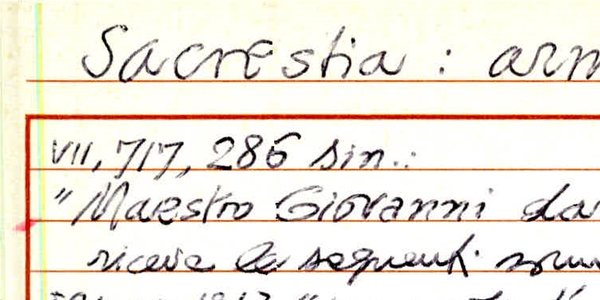 Sacrestia : arm
VII, 717, 286 sin.:
"Maestro Giovanni da
riceve le seguenti somm